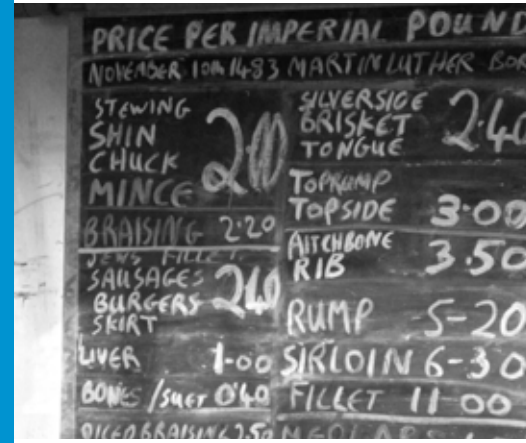 PRICE PER IMPERIAL POUND
NOVEMBER 10th 1483 MARTIN LUTHER BOR
STEWING
SHIN
CHUCK
MINCE
2.00
BRAISING 2.20
JEWS FILLET
SAUSAGES
BURGERS
SKIRT
2.40
LIVER 1-00
BONES/SUET 0.40
DICED BRAISING 2.50
SILVERSIDE
BRISKET
TONGUE
2.40
TOPRUMP
TOPSIDE 3.00
AITCHBONE
RIB
3.50
RUMP 5-20
SIRLOIN 6-30
FILLET 11 00